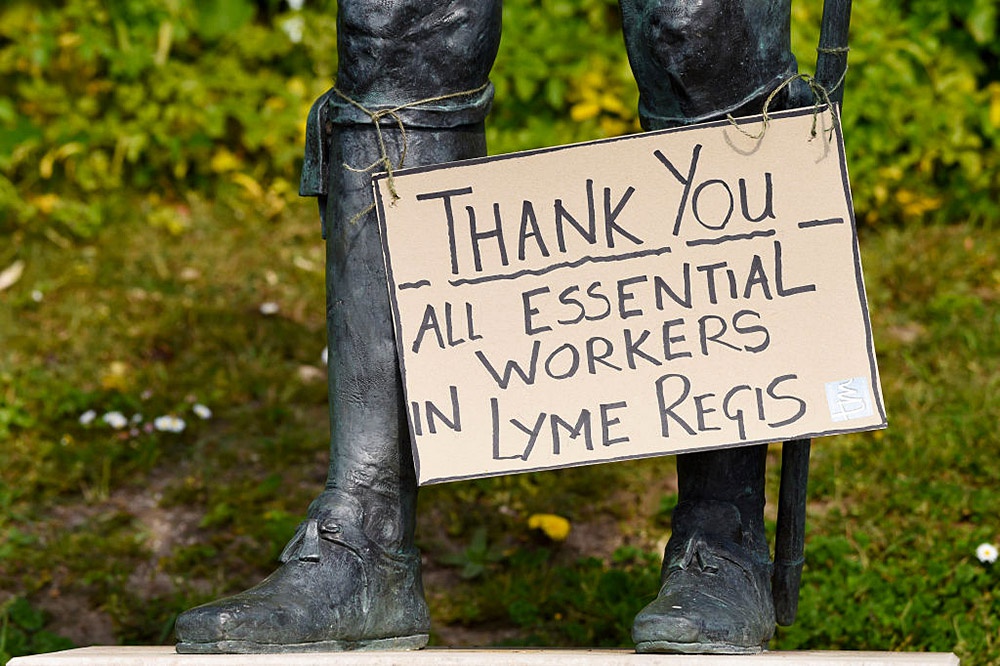 THANK YOU
ALL ESSENTIAL
WORKERS
IN LYME REGIS